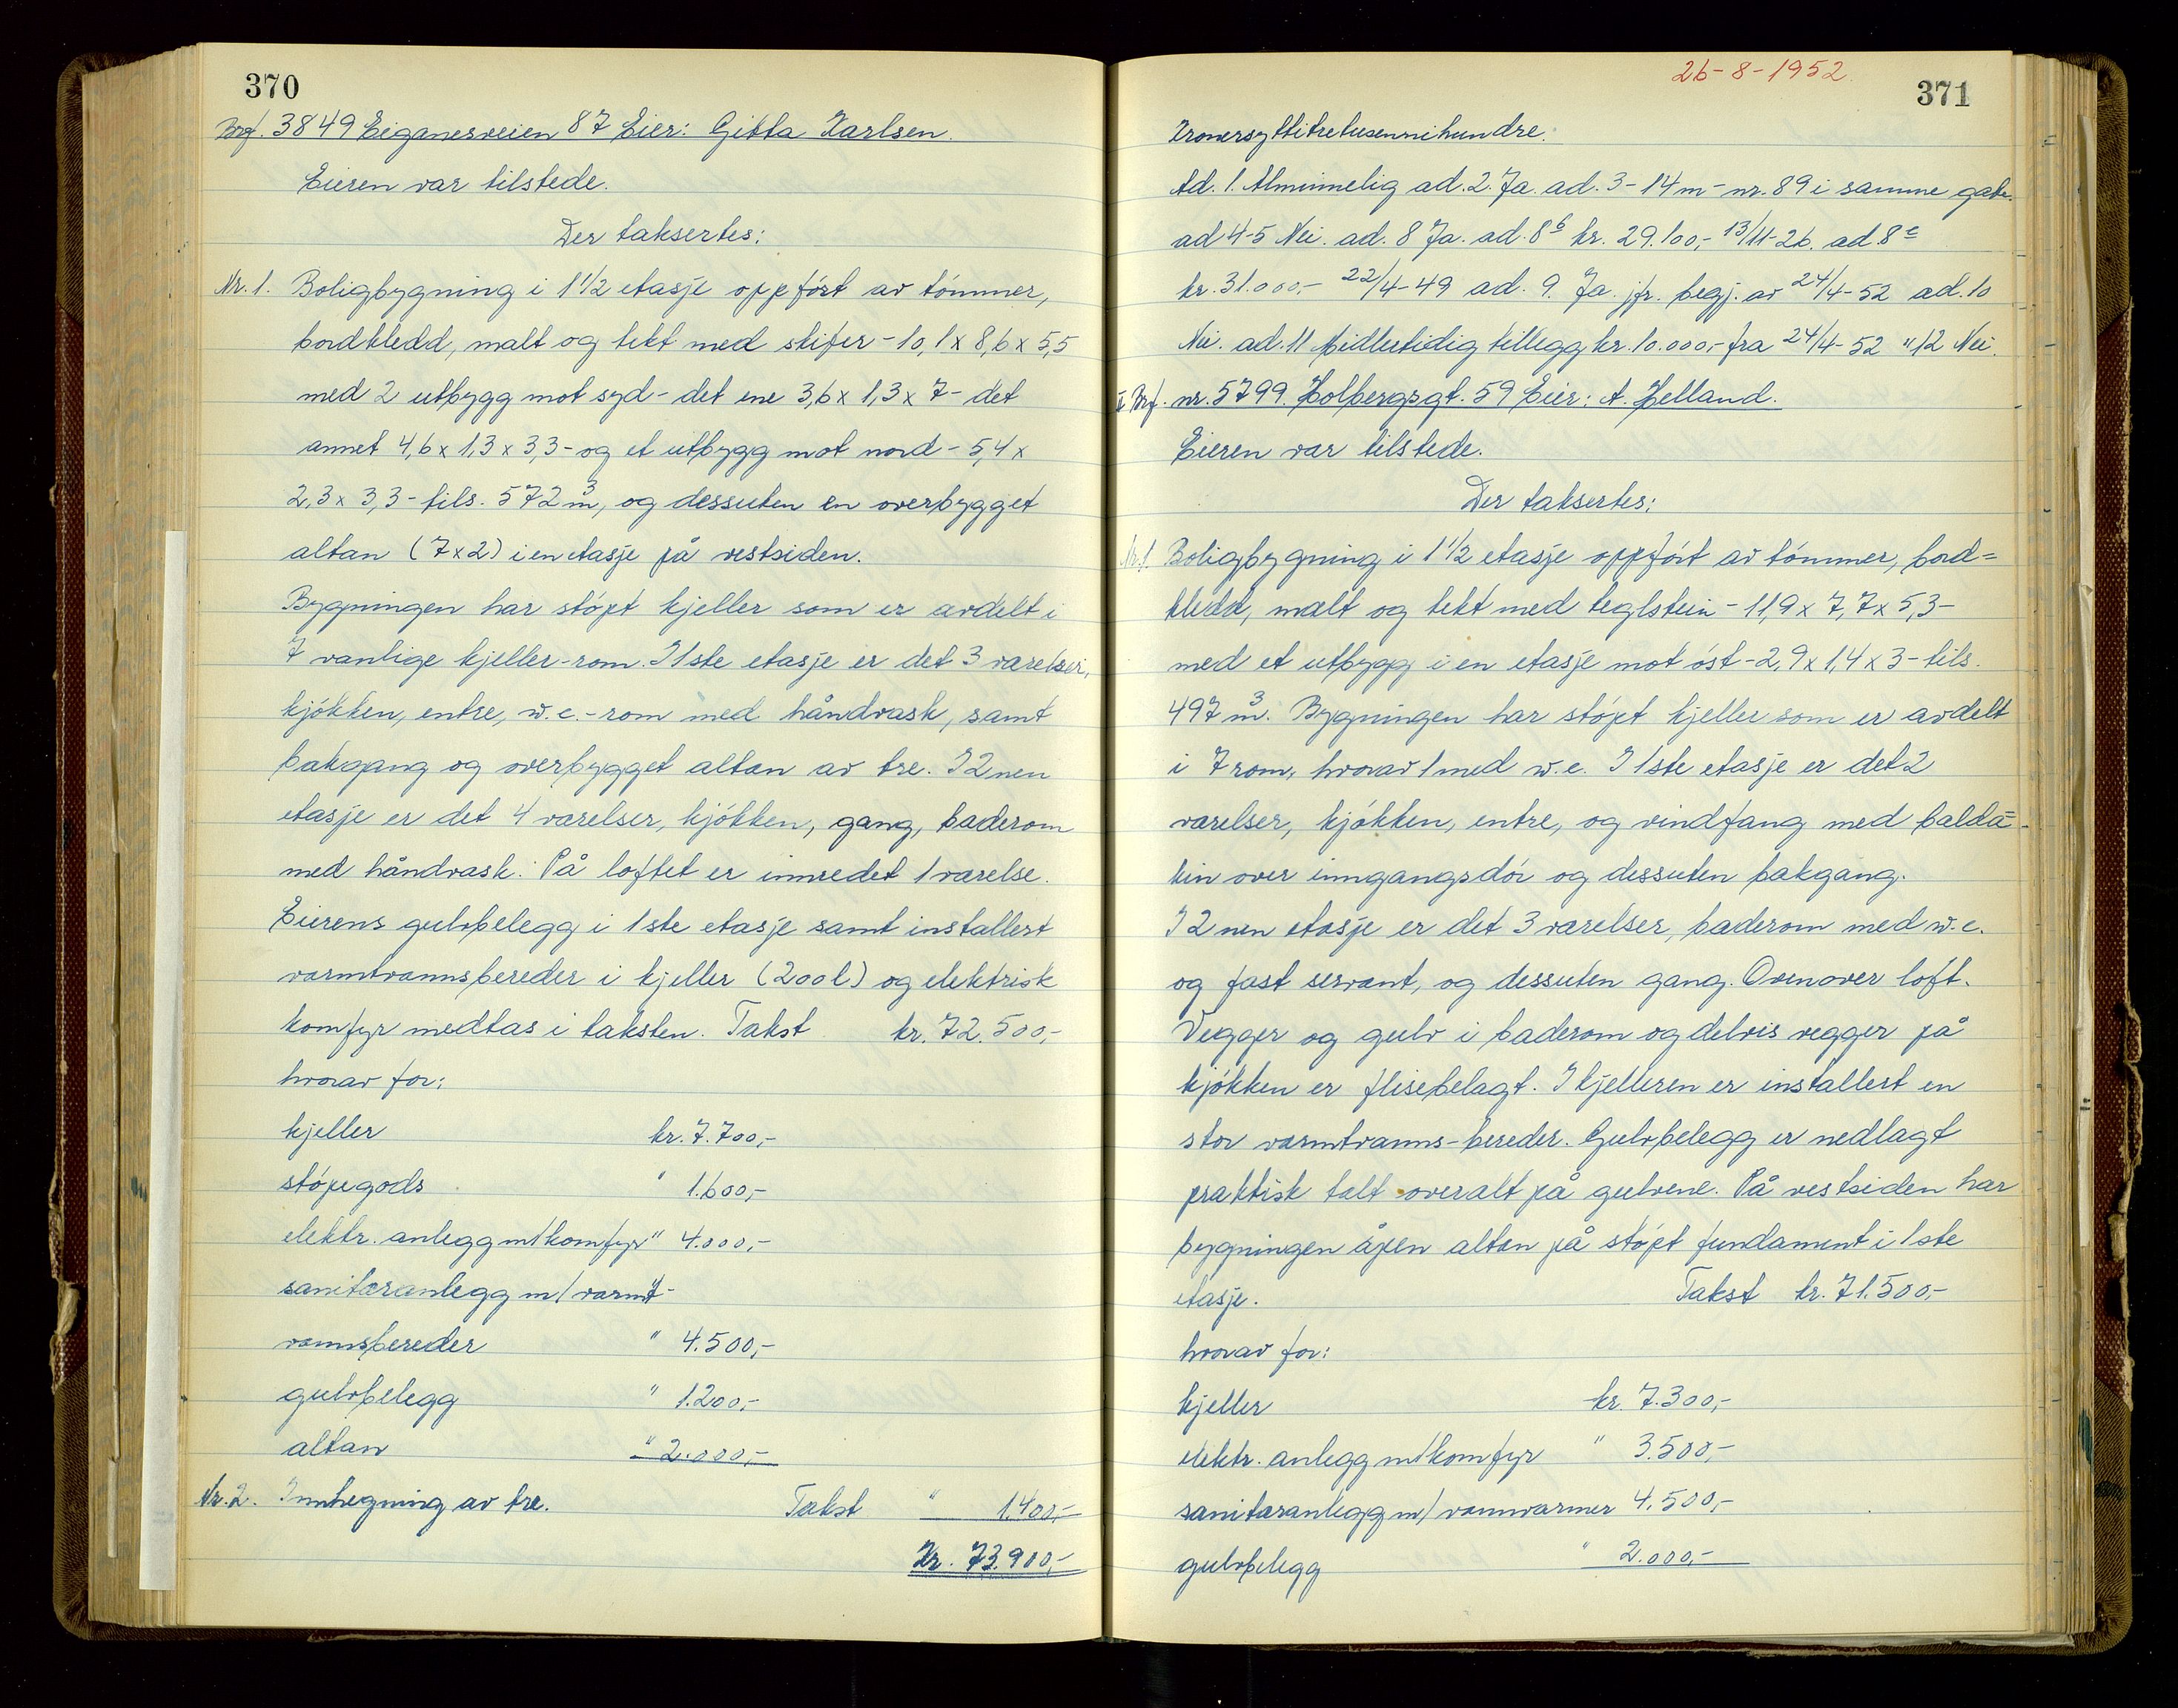 370
Brf. 3849 Eiganesveien 87 Eier: Gitta Karlsen.
Eieren var tilstede.
Der taksertes:
Nr. 1. Boligbygning i 1 1/2 etasje oppført av tømmer,
bordkledd, malt og tekt med skifer - 10,1 x 8,6 x 5,5
med 2 utbygg mot syd - det ene 3,6 x 1,3 x 7 - det
annet 4,6 x 1,3 x 3,3 - og et utbygg mot nord - 5,4 x
2,3 x 3,3 - tils. 572 m³, og dessuten en overbygget
altan (7x2) i en etasje på vestsiden.
Bygningen har støpt kjeller som er avdelt i
7 vanlige kjeller-rom. I 1ste etasje er det 3 værelser,
kjøkken, entre, w.c.-rom med håndvask, samt
bakgang og overbygget altan av tre. I 2nen
etasje er det 4 værelser, kjøkken, gang, baderom
med håndvask. På loftet er innredet 1 værelse.
Eierens gulvbelegg i 1ste etasje samt installert
varmtvannsbereder i kjeller (200 l) og elektrisk
komfyr medtas i taksten. Takst kr. 72.500,-
hvorav for:
kjeller kr. 7.700,-
støpegods " 1.600,-
elektr. anlegg m/komfyr " 4.000,-
sanitæranlegg m/varmt-
vannsbereder " 4.500,-
gulvbelegg " 1.200,-
altan " 2.000,-
Nr. 2. Innhegning av tre. Takst " 1.400,-
Kr. 73.900,-
26-8-1952.
371
Kronersyttitretusennihundre.
Ad. 1. Alminnelig ad. 2. Ja. ad. 3 - 14 m - nr. 89 i samme gate.
ad 4-5 Nei. ad. 8 Ja. ad. 8b kr. 29.100,- 13/11-26. ad 8c
kr. 31.000,- 22/4-49 ad. 9. Ja. jfr. begj. av 24/4-52 ad. 10
Nei. ad. 11 Midlertidig tillegg kr. 10.000,- fra 24/4-52 " 12 Nei.
Brf. nr. 5799. Holbergsgt. 59 Eier: A. Helland.
Eieren var tilstede.
Der taksertes:
Nr. 1. Boligbygning i 1 1/2 etasje oppført av tømmer, bord=
kledd, malt og tekt med teglstein - 11,9 x 7,7 x 5,3 -
med et utbygg i en etasje mot øst - 2,9 x 1,4 x 3 - tils.
497 m³. Bygningen har støpt kjeller som er avdelt
i 7 rom, hvorav 1 med w.c. I 1ste etasje er det 2
værelser, kjøkken, entre, og vindfang med balda-
kin over inngangsdør og dessuten bakgang.
I 2nen etasje er det 3 værelser, baderom med w.c.
og fast servant, og dessuten gang. Ovenover loft.
Vegger og gulv i baderom og delvis vegger på
kjøkken er flisebelagt. I kjelleren er installert en
stor varmtvanns-bereder. Gulvbelegg er nedlagt
praktisk talt overalt på gulvene. På vestsiden har
bygningen åpen altan på støpt fundament i 1ste
etasje. Takst kr. 71.500,-
hvorav for:
kjeller kr. 7.300,-
elektr. anlegg m/komfyr " 3.500,-
sanitæranlegg m/vannvarmer 4.500,-
gulvbelegg " 2.000,-